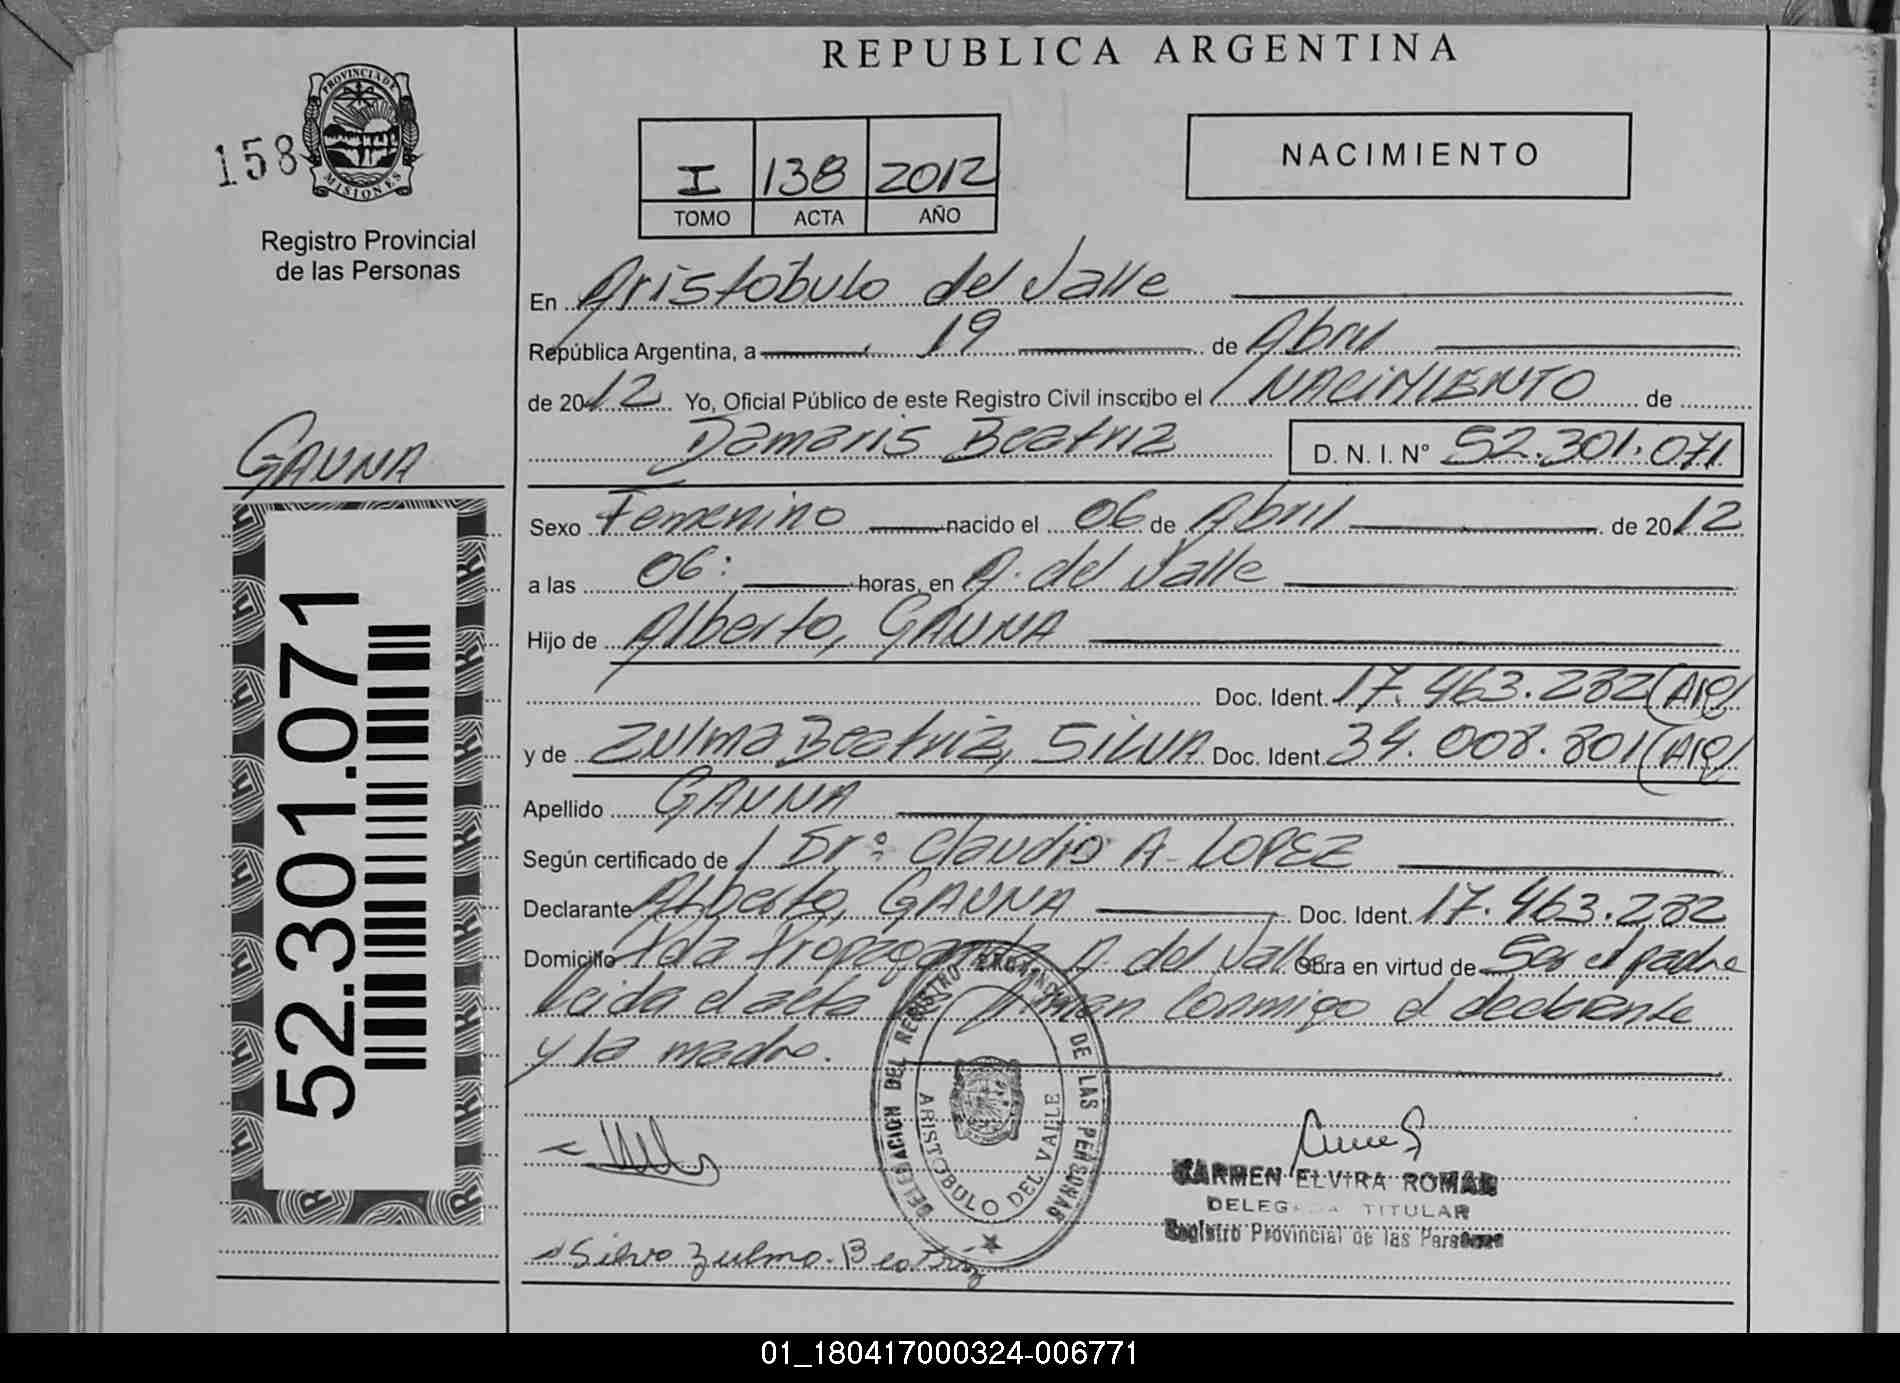 REPUBLICA ARGENTINA
PROVINCIA DE
MISIONES
158
Registro Provincial
de las Personas
I 138 2012
TOMO ACTA AÑO
NACIMIENTO
En Aristóbulo del Valle
República Argentina, a 19 de Abril
de 2012 Yo, Oficial Público de este Registro Civil inscribo el NACIMIENTO de
GAUNA
Damaris Beatriz D. N. I. N° 52.301.071
Sexo Femenino nacido el 06 de Abril de 2012
a las 06: horas, en A. del Valle
Hijo de Alberto, GAUNA
Doc. Ident. 17.463.282 (Arg)
y de Zulma Beatriz, SILVA Doc. Ident. 34.008.801 (Arg)
Apellido GAUNA
Según certificado de Dr: Claudio A. LOPEZ
Declarante Alberto, GAUNA Doc. Ident. 17.463.282
Domicilio Pda Propaganda A. del Valle Obra en virtud de Ser el padre
Leida el acta firman conmigo el declarante
y la madre.
52.301.071
DELEGACION DEL REGISTRO PROVINCIAL DE LAS PERSONAS
ARISTOBULO DEL VALLE
CARMEN ELVIRA ROMAN
DELEGADA TITULAR
Registro Provincial de las Personas
Silva Zulma Beatriz
01_180417000324-006771